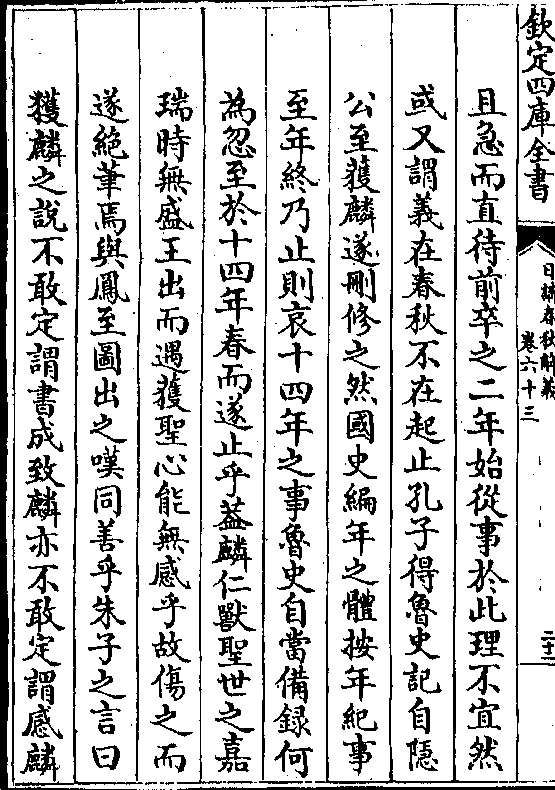 欽定四庫全書
日講春秋解義
卷六十三
二十二
且急而直待前卒之二年始從事於此理不宜然
或又謂義在春秋不在起止孔子得魯史記自隱
公至獲麟遂刪修之然國史編年之體按年紀事
至年終乃止則哀十四年之事魯史自當備録何
為忽至於十四年春而遂止乎葢麟仁獸聖世之嘉
瑞時無盛王出而遇獲聖心能無感乎故傷之而
遂絶筆焉與鳳至圖出之嘆同善乎朱子之言曰
獲麟之説不敢定謂書成致麟亦不敢定謂感麟